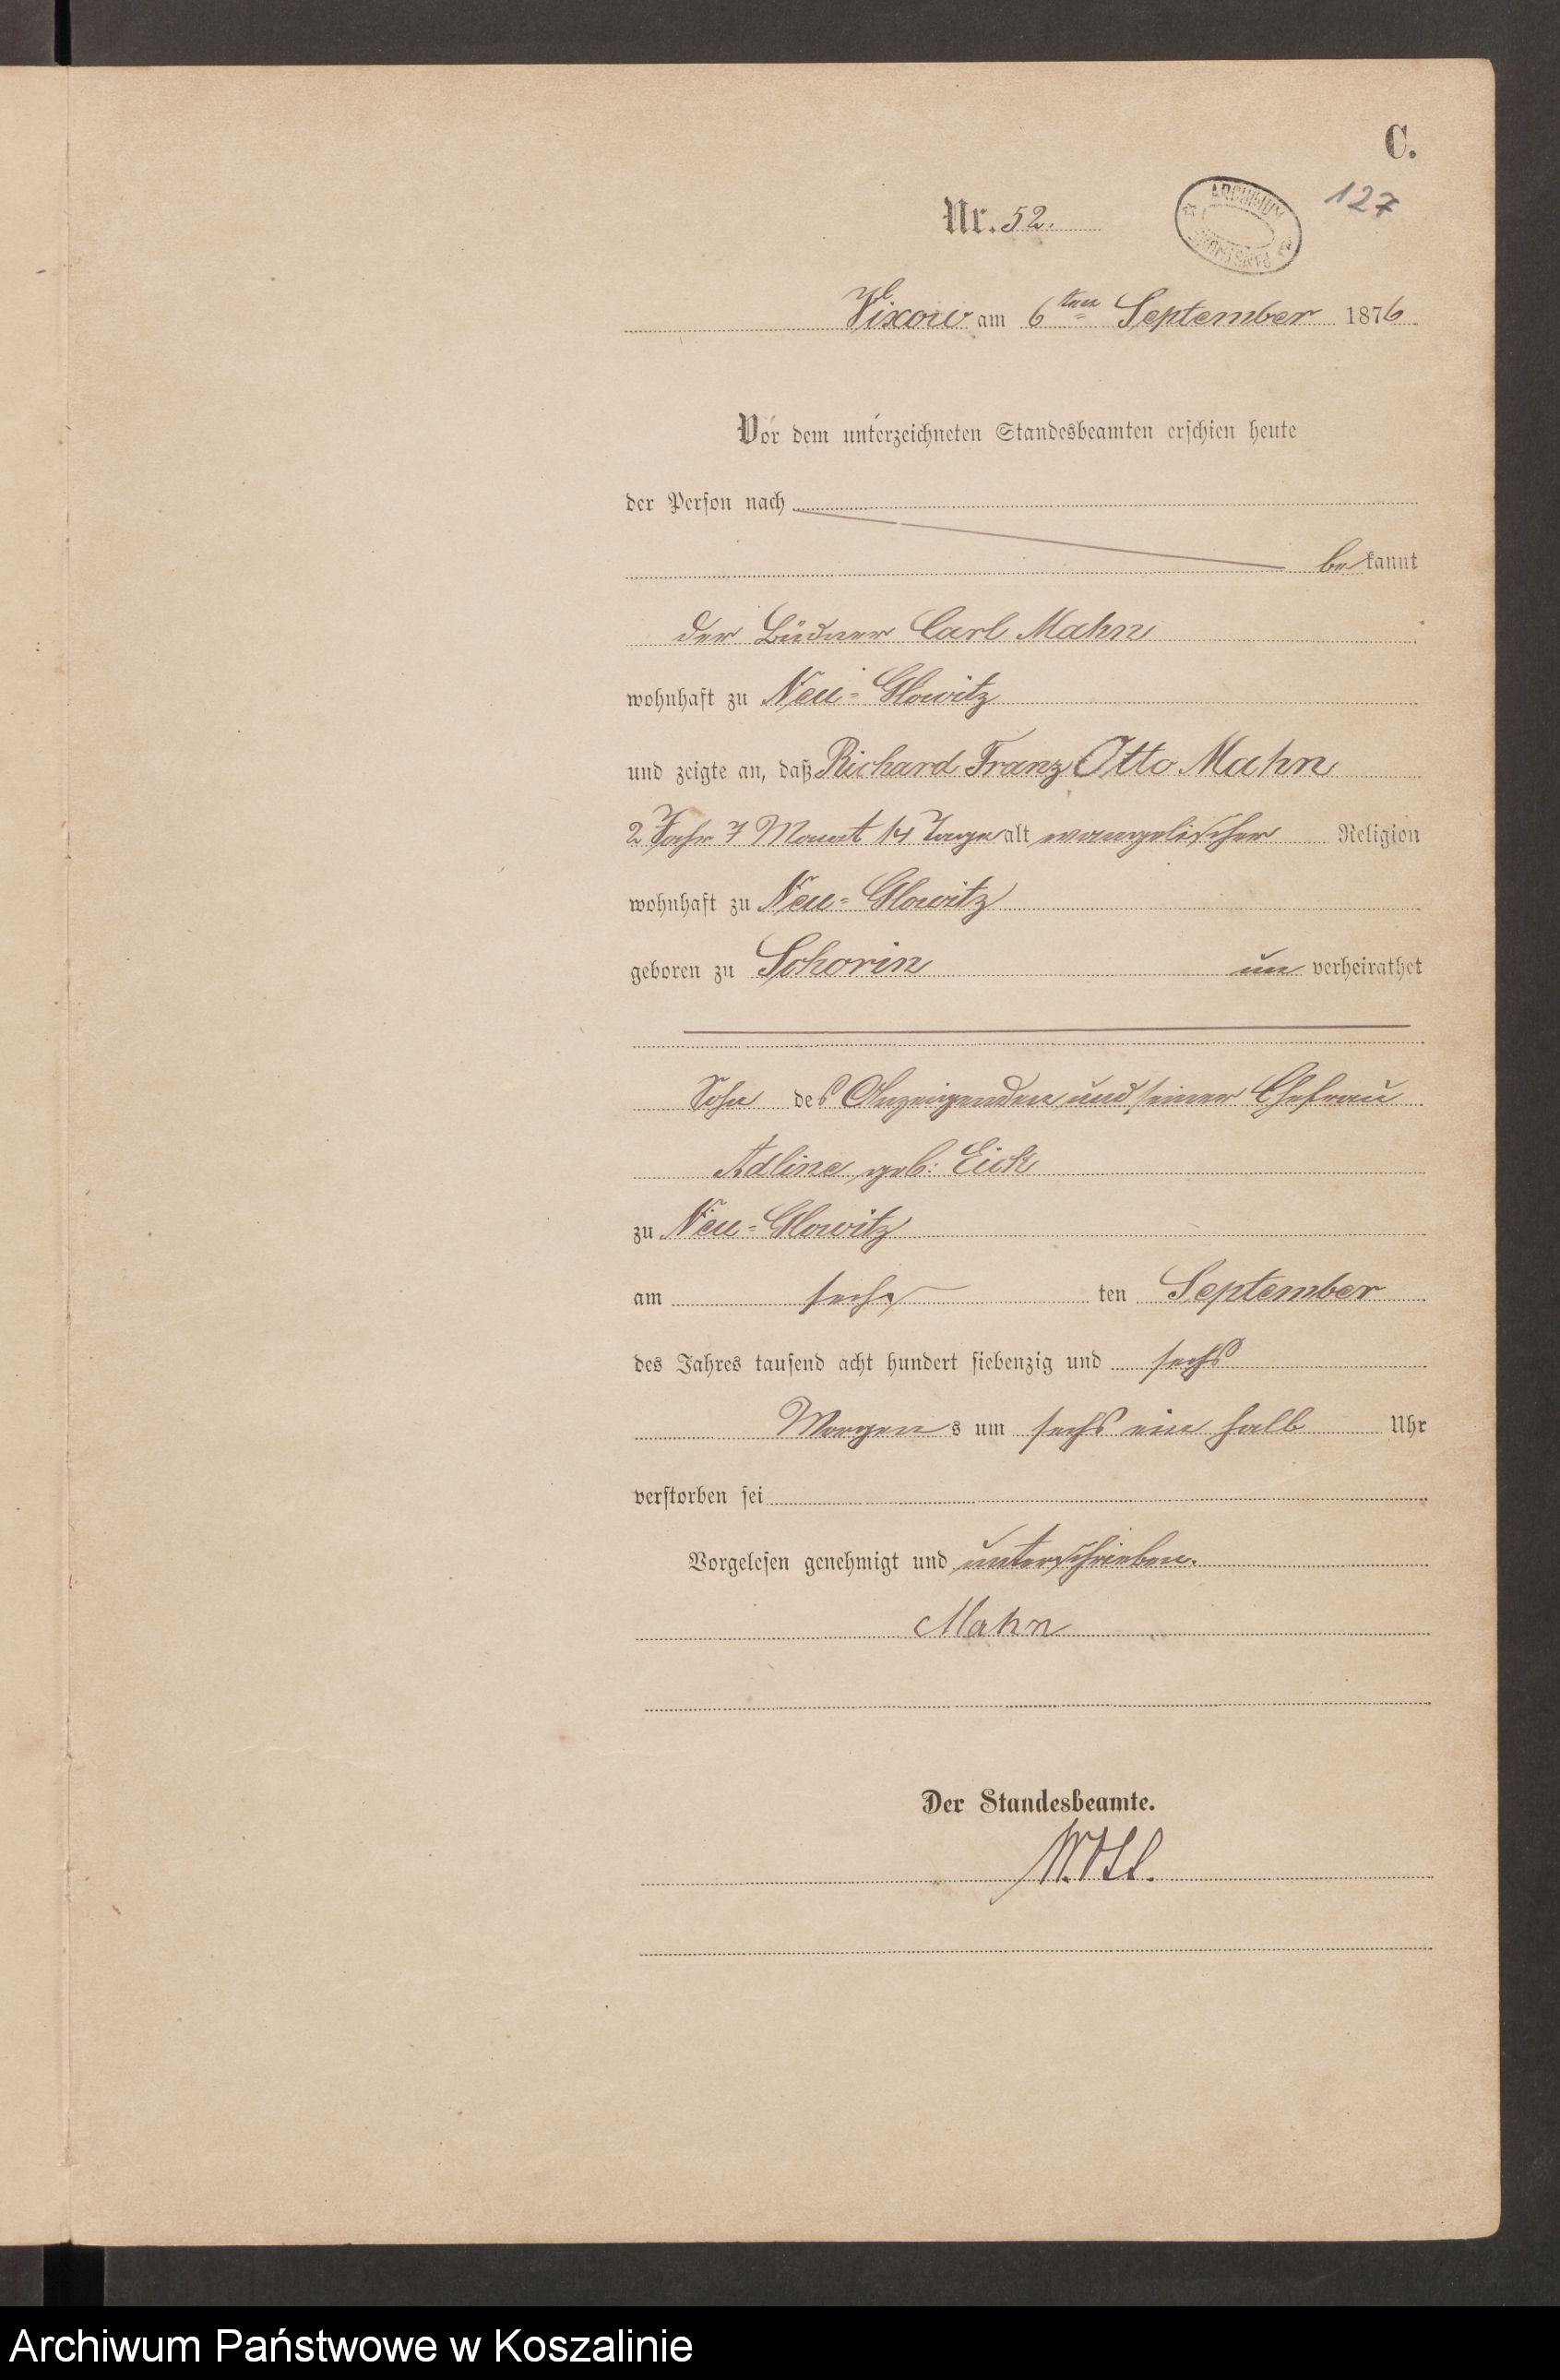 C.
127
ARCHIWUM PAŃSTWOWE
Nr. 52.
Vixow am 6ten September 1876
Vor dem unterzeichneten Standesbeamten erschien heute
der Person nach
bekannt
der Büdner Carl Mahn
wohnhaft zu Neu-Glowitz
und zeigte an, daß Richard Franz Otto Mahn
2 Jahr 7 Monat 14 Tage alt evangelischer Religion
wohnhaft zu Neu-Glowitz
geboren zu Schorin un verheirathet
Sohn des Anzeigenden und seiner Ehefrau
Adline geb: Eick
zu Neu-Glowitz
am sechs ten September
des Jahres tausend acht hundert siebenzig und sechs
Morgens um sechs ein halb Uhr
verstorben sei
Vorgelesen genehmigt und unterschrieben.
Mahn
Der Standesbeamte.
Archiwum Państwowe w Koszalinie